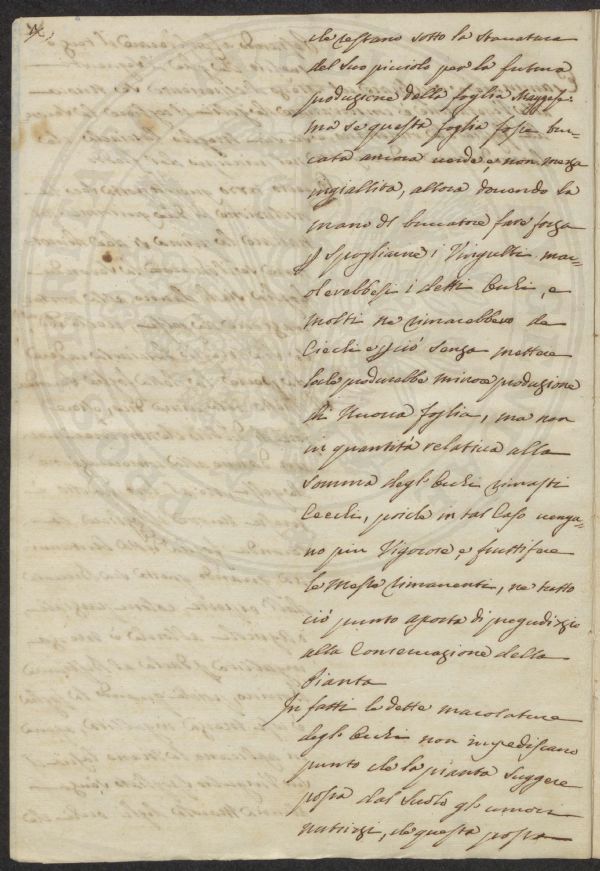 che restano sotto la staccatura
del suo picciolo per la futura
produzione della foglia Maggese.
ma se questa foglia fosse bru-
cata ancora verde, e non mezza
ingiallita, allora dovendo la
mano del brucatore fare forza
p spogliarne i Virgulti, mac-
olerebbesi i detti bechi, e
molti ne rimarebbero de
Ciechi e p ciò senza mettere
locchè produrebbe minore produzione
di Nuova foglia, ma non
in quantità relativa alla
somma degl' bechi rimasti
Ciechi, poichè in tal Caso venga-
no piu Vigorose, e fruttifere
le Messe rimanenti, ne tutto
ciò punto aporta di pregiudizio
alla Conservazione della
Pianta
In fatti le dette macolature
degl' bechi non impediscano
punto che la pianta suggere
possa dal suolo gl' umori
nutrizj, che questa possa